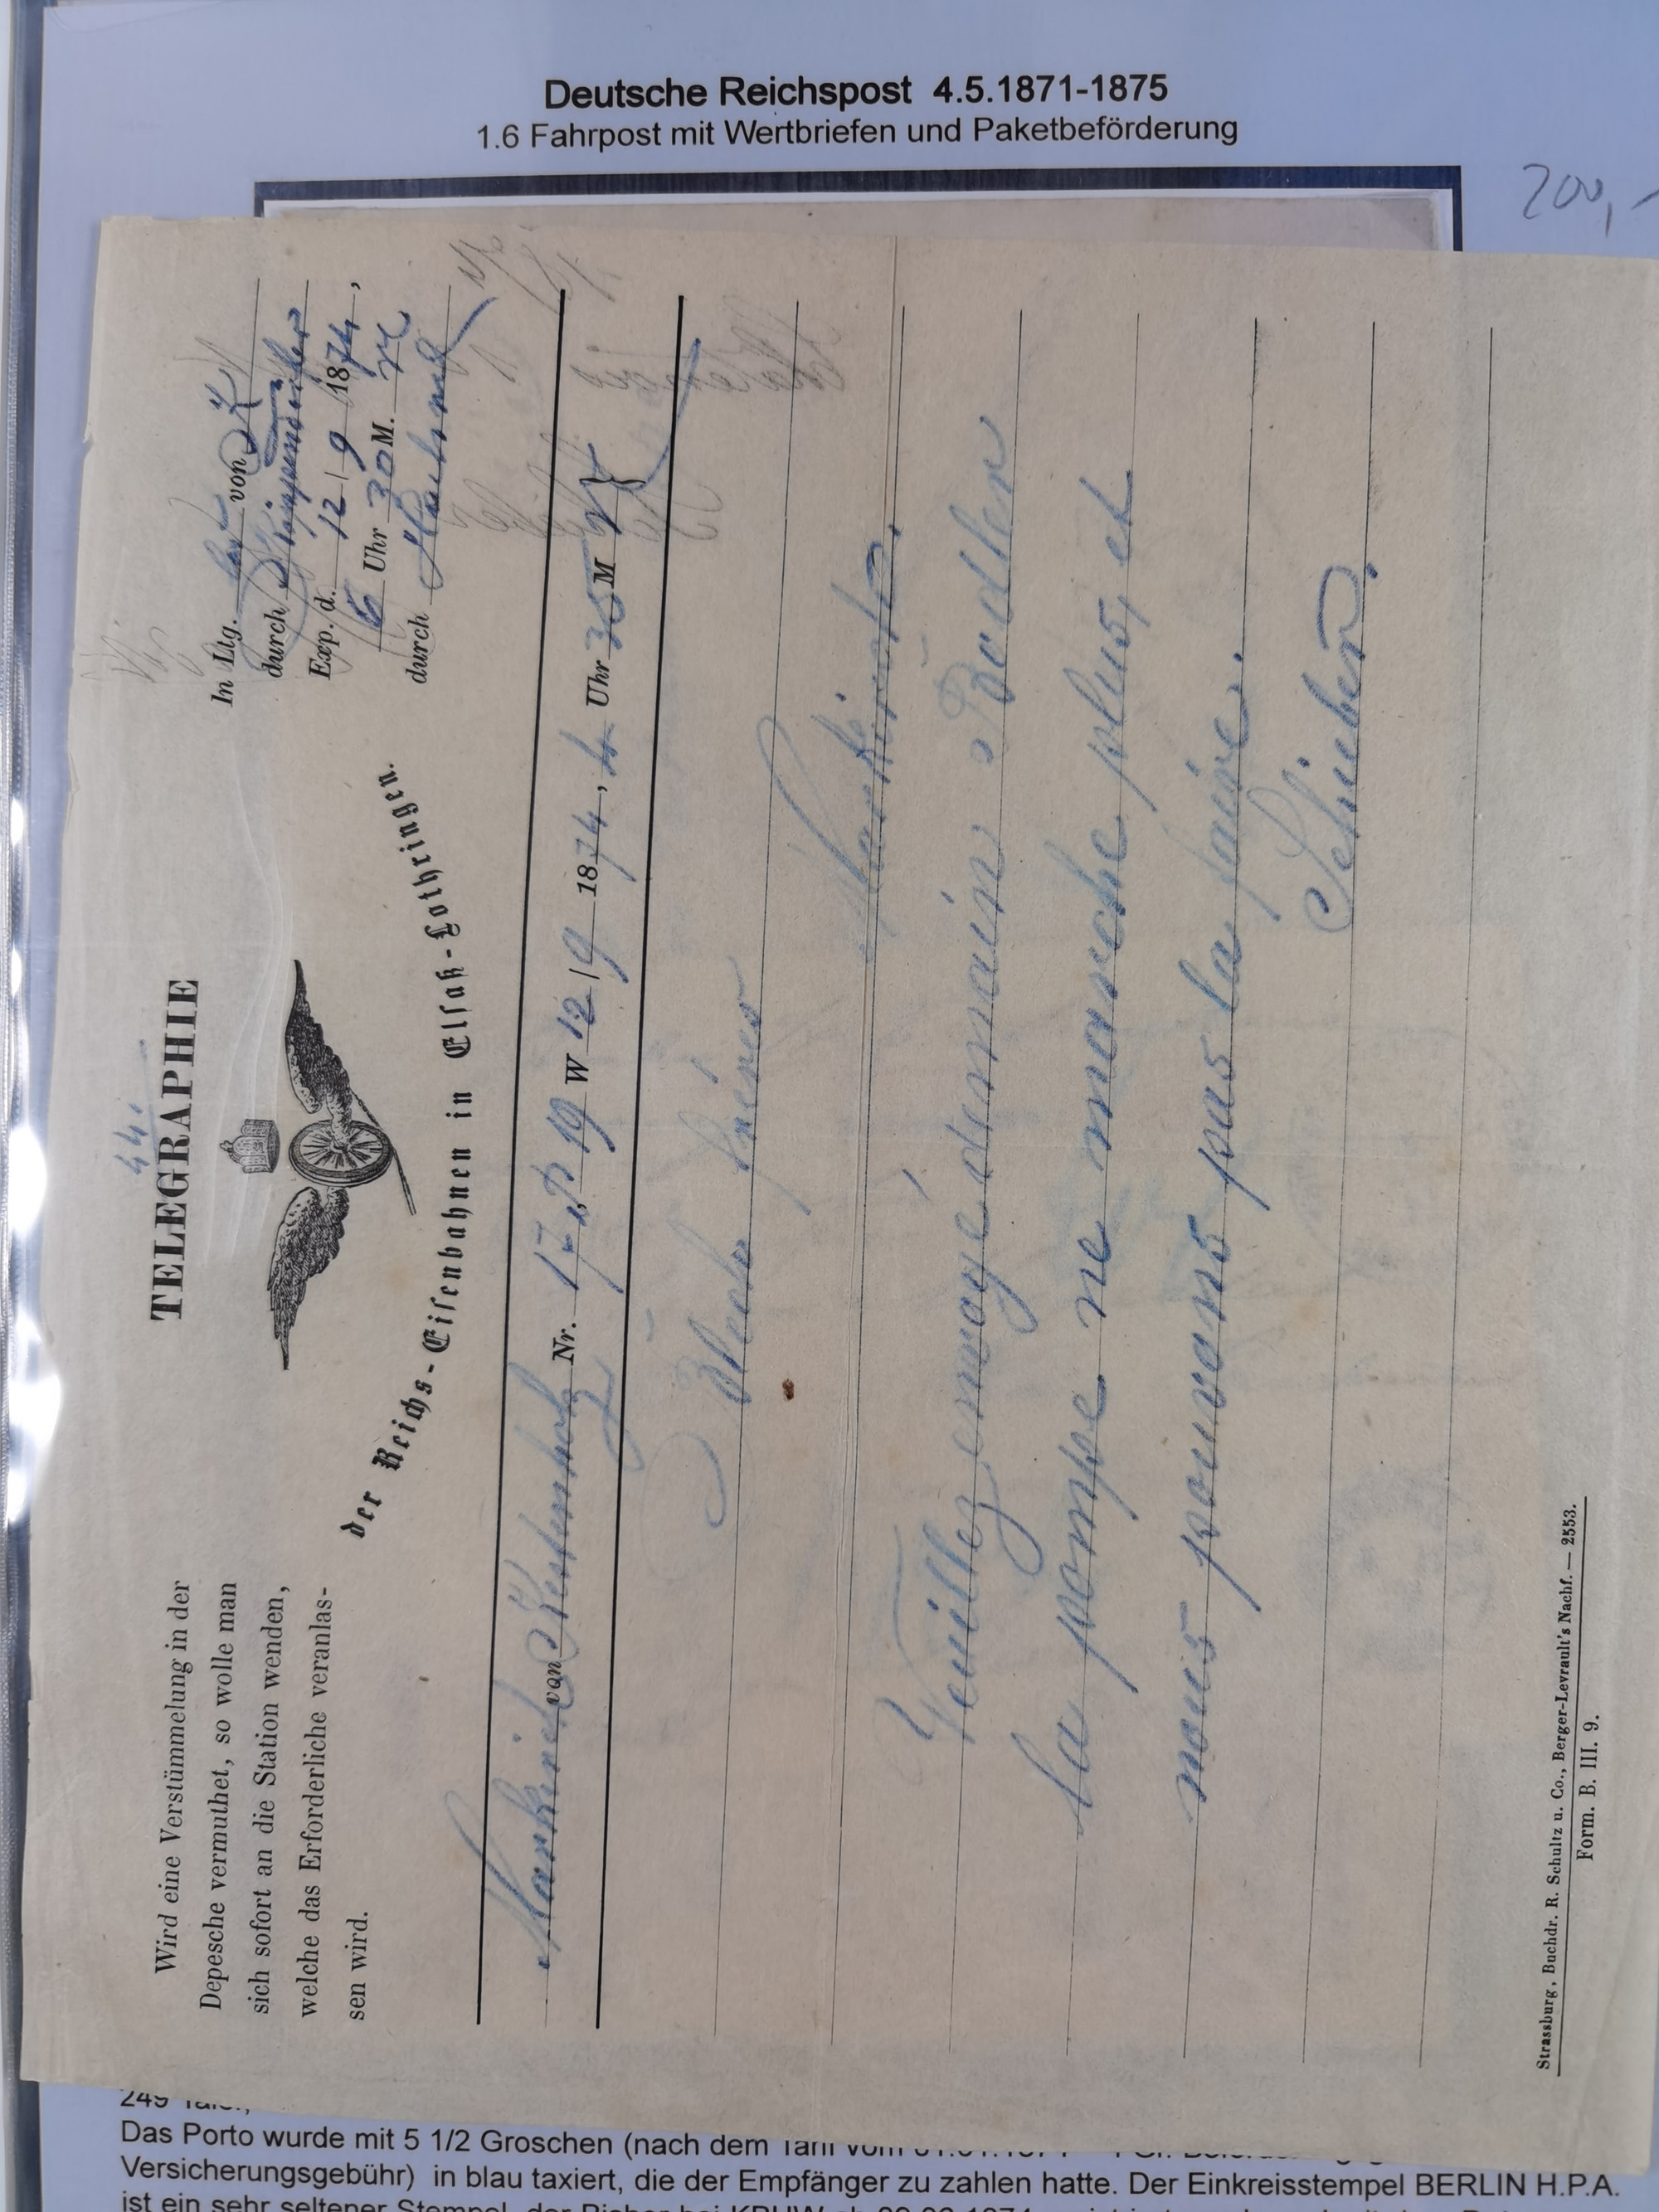 Deutsche Reichspost 4.5.1871-1875
1.6 Fahrpost mit Wertbriefen und Paketbeförderung
200,-
44.
TELEGRAPHIE
der Reichs-Eisenbahnen in Elsaß-Lothringen.
Wird eine Verstümmelung in der
Depesche vermuthet, so wolle man
sich sofort an die Station wenden,
welche das Erforderliche veranlas-
sen wird.
In Ltg. von
durch
Exp. d. 12/9 1874,
6 Uhr 30 M.
durch
Markirch von Kestenholz Nr. 17 19 W 12/9 1874, 4 Uhr 35 M
Bloch frères
Markirch.
Veuillez envoyé demain Bodler
la pompe ne marche plus, et
nous pouvons pas la faire.
Schieber.
Strassburg, Buchdr. R. Schultz u. Co., Berger-Levrault's Nachf. — 2553.
Form. B. III. 9.
249 Taler,
Das Porto wurde mit 5 1/2 Groschen (nach dem Tarif vom
Versicherungsgebühr) in blau taxiert, die der Empfänger zu zahlen hatte. Der Einkreisstempel BERLIN H.P.A.
ist ein sehr seltener Stempel, der